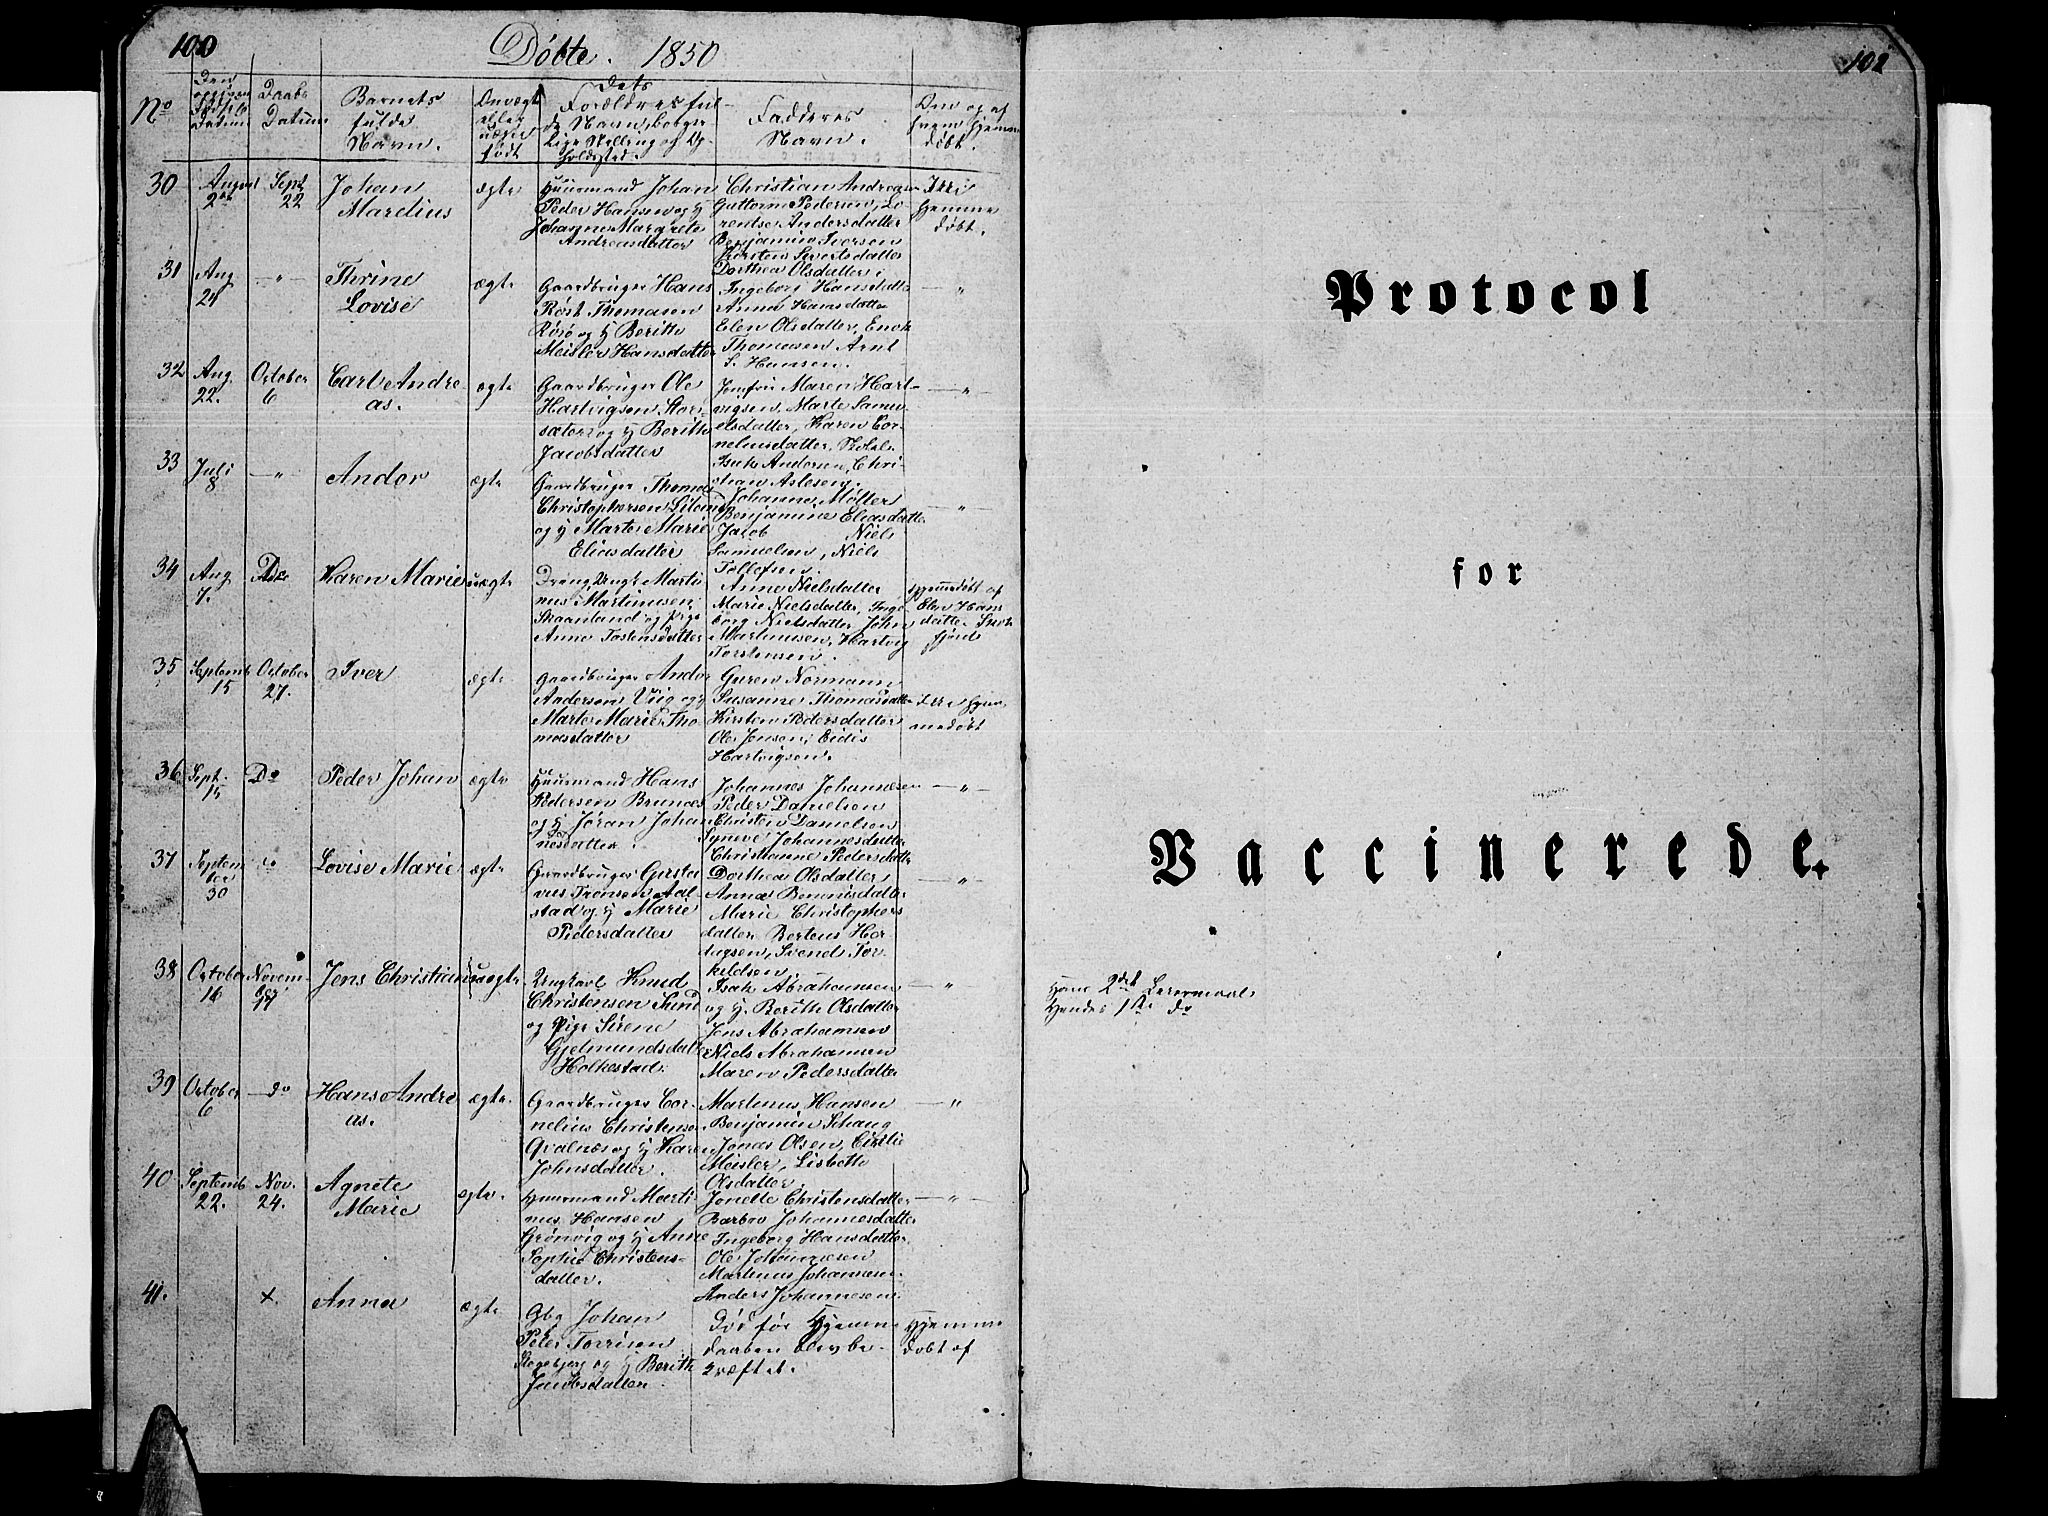 100
Döbte. 1850
No
Datum
Daabs
Datum
Barnets
fulde
Navn.
eller
uægte
født
Dets
Forældres ful-
de Navn, borger-
lige Stilling og Op-
holdssted.
Fadderes
Navn.
Om og af
hvem hjemme
døbt.
30
August
Sept
22
Johan
Mardius
ægte
Huusmand Johan
Peder Hansen og H
Johanne Margrete
Andreasdatter
Christian Andreasen
Guttorm Pedersen, Lo
rentse Andersdatter
Benjamin Iversen
Kirsten Sivertsdatter
Dorthea Olsdatter
Ikke
hjemme
døbt.
31
Aug
24
"
Thrine
Lovise
ægte
Gaardbruger Hans
Röst Thomasen
og H Beritte
Meisler Hansdatter
Ingeborg Hansdatter
Anna Hansdatter
Elen Olsdatter, Enok
Thomasen Arnt
S. Hansen.
"
32
Aug.
22.
October
6
Carl Andre
as.
ægte
Gaardbruger Ole
Hartvigsen Stor-
sæter og H Berith
Jacobsdatter
Jomfru Maren Hart-
vigsen, Marte Samu
elsdatter, Karen Cor-
neliusdatter,
Isak Andersen, Chri-
stian Aslesen.
"
33
Juli
8
"
Andor
ægte
Gaardbruger Thomas
Christophersen
og H Marte Marie
Eliasdatter
Johanne Møller
Benjamine Eliasdatter
Jacob Niels
Samuelsen, Niels
Tollefsen.
"
34
Aug.
7.
Do
Karen Marie
uægte
Dreng Ungk Marti
nus Martinusen
Skaanland og Pige
Anne Tostensdatter
Anne Nielsdatter
Marie Nielsdatter, Inge
borg Nielsdatter John
Martinusen, Hartvig
Torstensen.
Hjemmedøbt af
Elen Hans
datter
fjord
35
Septemb
15
October
27.
Iver
ægte
Gaardbruger Andor
Andersen Viig og H
Marte Marie Tho
masdatter
Guren Normann
Susanne Thomasdatter
Kirsten Pedersdatter
Ole Jensen, Eidis
Hartvigsen.
Ikke hjem
medøbt
36
Sept.
15
Do
Peder Johan
ægte
Huusmand Hans
Pedersen Brunæs
og H Jöran Johan
nesdatter.
Johannes Johannesen
Peder Danielsen
Christen Danielsen
Synneve Johannesdatter
Christianne Pedersdatter
"
37
Septem
ber
30
do
Lovise Marie
ægte
Gaardbruger Gusta
ves Tronsen Aal-
stad og H Marie
Pedersdatter
Dorthea Olsdatter
Anna Bennisdatter
Marie Christophers
datter Berteus Hor
dagsen, Svend Tor-
keldsen
"
38
October
16
Novem-
ber
17
Jens Christian
uægte
Ungkarl Knud
Christensen Sund
og Pige Sirene
Gjelmundsdatter
Holkestad.
Isak Abrahamsen
og H. Berith Olsdatter
Jens Abrahamsen
Niels Abrahamsen
Maren Pedersdatter
"
39
October
6
do
Hans Andre
as.
ægte.
Gaardbruger Cor-
nelius Christensen
Qvalnæs og H Karen
Johnsdatter.
Martinus Hansen
Benjamin Schang
Jonas Olsen, Cicilie
Meisler, Lisbette
Olsdatter.
"
40
Septemb
22.
Nov.
24.
Agnete
Marie
ægte.
Huusmand Marti-
nus Hansen
Grönvig og H Anne
Sophie Christens-
datter.
Jonette Christensdatter
Barbro Johannesdatter
Ingeborg Hansdatter
Ole Johannesen
Martinus Johannesen
Anders Johannesen.
"
41.
x.
Anna
ægte
Gbg Johan
Peter Torrisen
og H Berith
Jacobsdatter
Död før Hjemme
daaben blev be-
kræftet.
Hjemme
døbt af
102
Protocol
for
Vaccinerede.
Hans 2det Leiermaal.
Hendes 1ste do